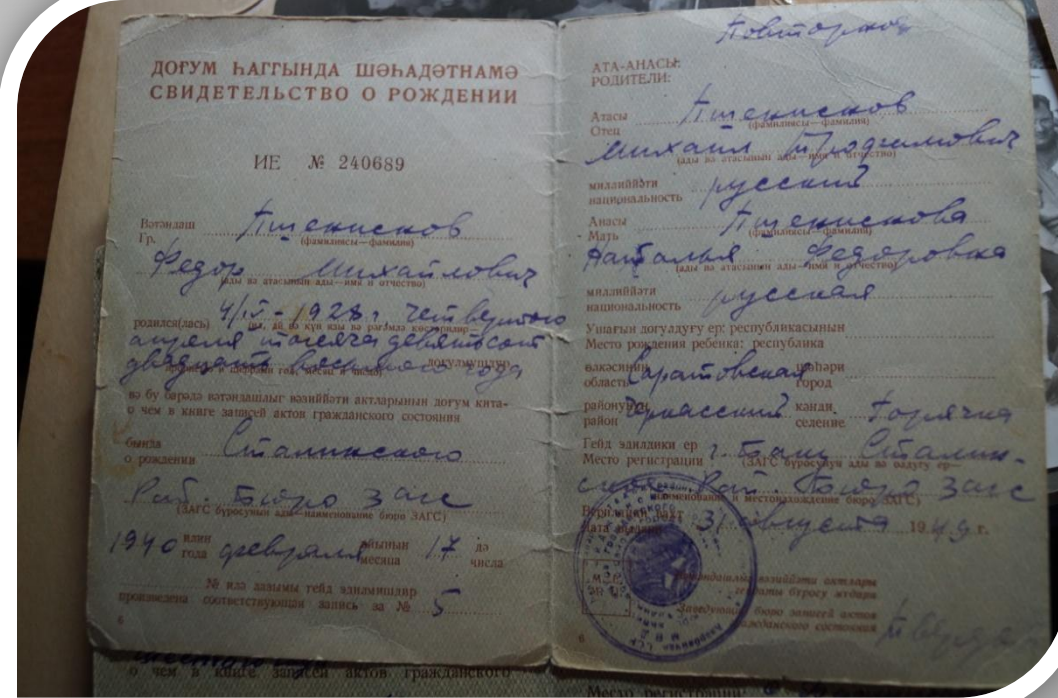 ДОҒУМ ҺАГГЫНДА ШӘҺАДӘТНАМӘ
СВИДЕТЕЛЬСТВО О РОЖДЕНИИ
ИЕ № 240689
Вәтәндаш
Гр. Пшенисков
(фамилиясы—фамилия)
Федор Михайлович
(ады вә атасынын ады—имя и отчество)
4/IV-1928г. четвертого
родился(лась)
апреля тысяча девятьсот
двадцать восьмого года
вә бу барәдә вәтәндашлыг вәзиййәти актларынын доғум кита-
о чем в книге записей актов гражданского состояния
бында
о рождении Сталинского
Рай. Бюро Загс
(ЗАГС бүросунун ады—наименование бюро ЗАГС)
1940 илин февраля айынын 17 дә
года месяца числа
№ илә лазымы гейд эдилмишдир
произведена соответствующая запись за № 5
6
Повторное
АТА-АНАСЫ:
РОДИТЕЛИ:
Атасы
Отец Пшенисков
(фамилиясы—фамилия)
Михаил Трофимович
(ады вә атасынын ады—имя и отчество)
миллиййәти
национальность русский
Анасы
Мать Пшенискова
(фамилиясы—фамилия)
Наталья Федоровна
(ады вә атасынын ады—имя и отчество)
миллиййәти
национальность русская
Ушағын доғулдуғу ер: республикасынын
Место рождения ребенка: республика
өлкәсинин шәһәри
область Саратовская город
районунун кәнди
район селение Горячка
Гейд эдилдики ер
Место регистрации г. Баку Сталин-
(ЗАГС бүросунун ады вә олдуғу ер—
ский Рай. Бюро Загс
наименование и местонахождение бюро ЗАГС)
Дата выдачи 31 августа 1949 г.
М. П.
Заведующий бюро записей актов
гражданского состояния
6
о чем в книге записей актов гражданского
Место регистрации: